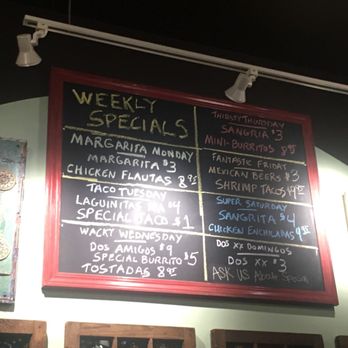 WEEKLY
SPECIALS
MARGARITA MONDAY
MARGARITA $3
CHICKEN FLAUTAS 8.95
TACO TUESDAY
LAGUINITAS $4
SPECIAL TACO $1
WACKY WEDNESDAY
DOS AMIGOS $9
SPECIAL BURRITO $5
TOSTADAS 8.95
THIRSTY THURSDAY
SANGRIA $3
MINI-BURRITOS 8.95
FANTASTIC FRIDAY
MEXICAN BEERS $3
SHRIMP TACOS
SUPER SATURDAY
SANGRITA $4
CHICKEN ENCHILADAS
DOS XX DOMINGOS
DOS XX $3
ASK US About Specials